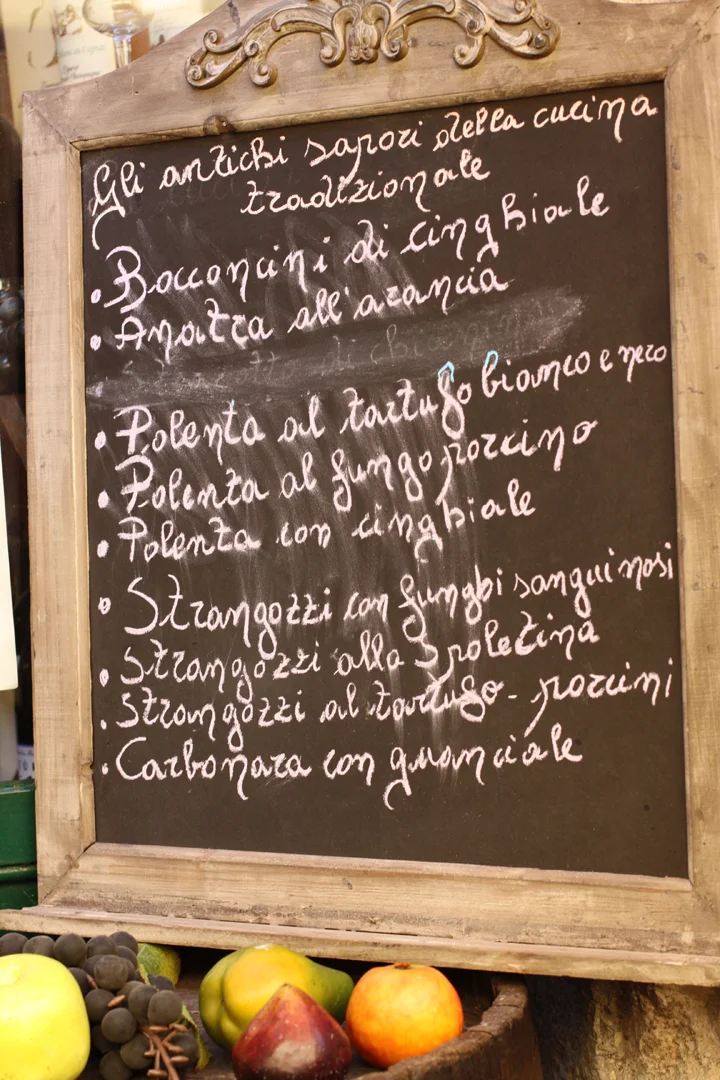 Gli antichi sapori della cucina
tradizionale
• Bocconcini di cinghiale
• Anatra all'arancia
di
• Polenta al tartufo bianco e nero
• Polenta al fungo porcino
• Polenta con cinghiale
• Strangozzi con funghi sanguinosi
• Strangozzi alla Spoletina
• Strangozzi al tartufo - porcini
• Carbonara con guanciale